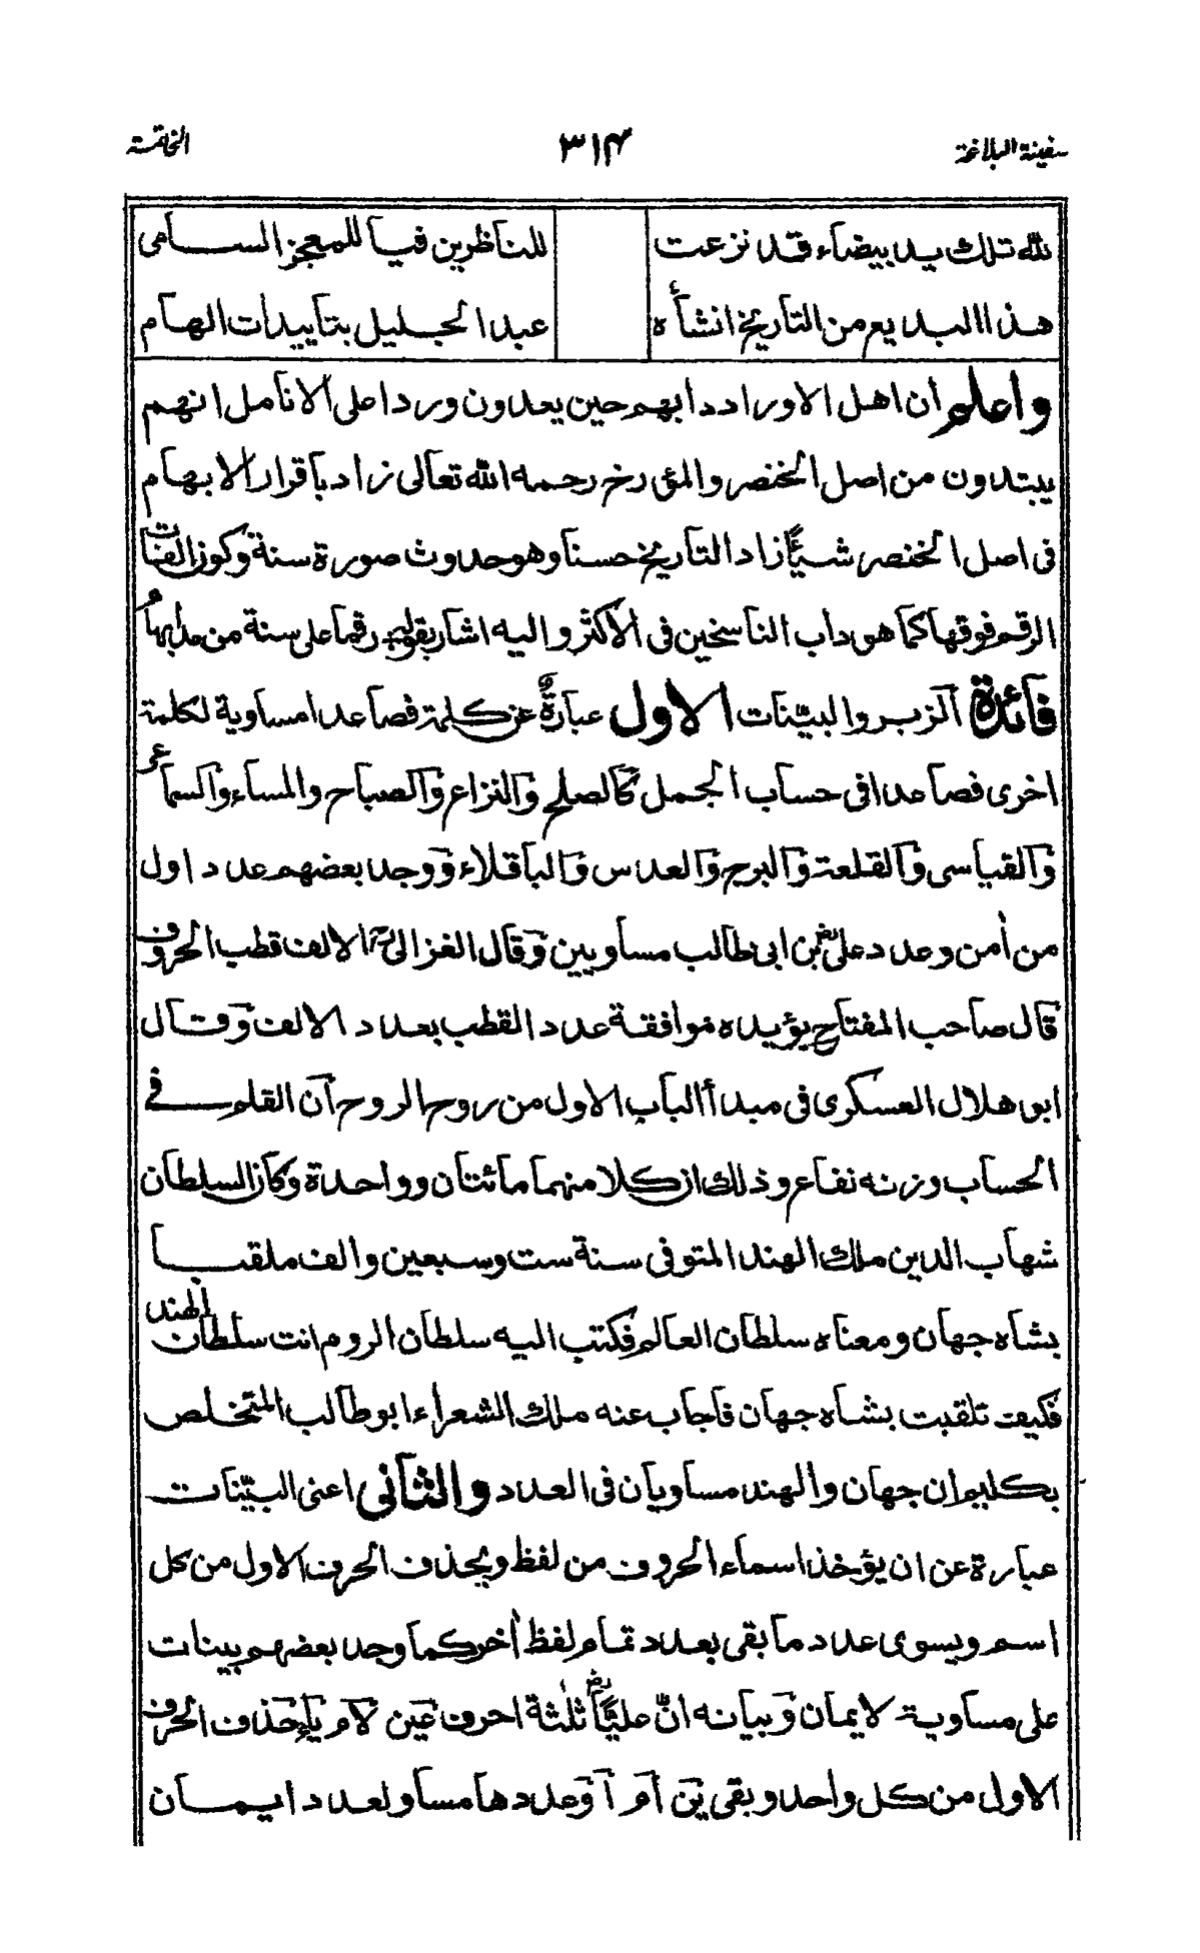 سفينة البلاغة ٣١٤ الخاتمة
لله تلك يد بيضاء قد نزعت للناظرين فيا للمعجز السامى
هذا البديع من التاريخ انشأه عبد الجليل بتاييدات الهام
واعلم ان اهل الاوراد دابهم حين يعدون وردا على الانامل انهم
يبتدون من اصل الخنصر والمؤرخ رحمه الله تعالى زاد باقرار الابهام
فى اصل الخنصر شيئًا زاد التاريخ حسنا وهو حدوث صورة سنة وكون الفات
الرقم فوقها كما هو داب الناسخين فى الاكثر واليه اشار بقوله رقما على سنة من مدابهام
فائدة الزبر والبينات الاول عبارةٌ عن كلمة فصاعدا مساوية لكلمة
اخرى فصاعدا فى حساب الجمل كالصلح والنزاع والصباح والمساء والسماع
والقياسى والقلعة والبرج والعدس والباقلاء ووجد بعضهم عدد اول
من أمن وعدد على رض بن ابى طالب مساويين وقال الغزالى رح الالف قطب الحروف
قال صاحب المفتاح يؤيده موافقة عدد القطب بعدد الالف وقال
ابو هلال العسكرى فى مبدأ الباب الاول من روح الروح ان القلم فے
الحساب وزنه نفاع وذلك ان كلا منهما مائتان وواحدة وكان السلطان
شهاب الدين ملك الهند المتوفى سنة ست وسبعين والف ملقبا
بشاه جهان ومعناه سلطان العالم فكتب اليه سلطان الروم انت سلطان الهند
فكيف تلقبت بشاه جهان فاجاب عنه ملك الشعراء ابو طالب المتخلص
بكليم ان جهان والهند مساويان فى العدد والثانى اعنى البينات
عبارة عن ان يؤخذ اسماء الحروف من لفظ ويحذف الحرف الاول من كل
اسم ويسوى عدد ما بقى بعدد تمام لفظ أخر كما وجد بعضهم بينات
على مساوية لايمان وبيانه انّ عليًّا رض ثلثة احرف عين لام يا يحذف الحرف
الاول من كل واحد وبقى ين ام ا وعددها مساو لعدد ايمان